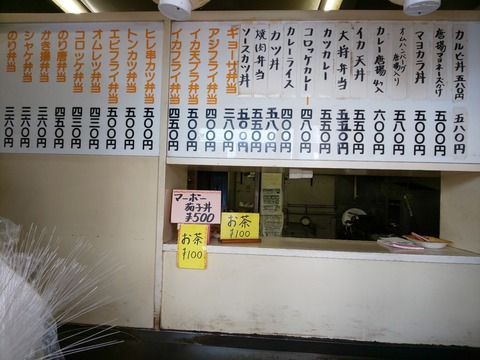 カルビ丼 五八〇円 五八〇円
唐揚マヨネーズがけ 五〇〇円
マヨカラ丼 五〇〇円
オムハンバーグ 唐揚入り 五八〇円
カレー唐揚入 六〇〇円
イカ天丼 五〇〇円
大将弁当 五五〇円
カツカレー 五五〇円
コロッケカレー 四八〇円
カレーライス 四〇〇円
カツ丼 五八〇円
焼肉弁当 五五〇円
ソースカツ丼 五〇〇円
ギョーザ弁当 三八〇円
アジフライ弁当 四五〇円
イカ天フライ弁当 五〇〇円
イカフライ弁当 四五〇円
ヒレ串カツ弁当 五〇〇円
トンカツ弁当 五〇〇円
エビフライ弁当 五五〇円
オムレツ弁当 四三〇円
コロッケ弁当 四三〇円
のり唐弁当 四五〇円
かき揚弁当 三八〇円
シャケ弁当 三六〇円
のり弁当 三六〇円
マーボー
茄子丼
¥500
お茶
¥100
お茶
¥100